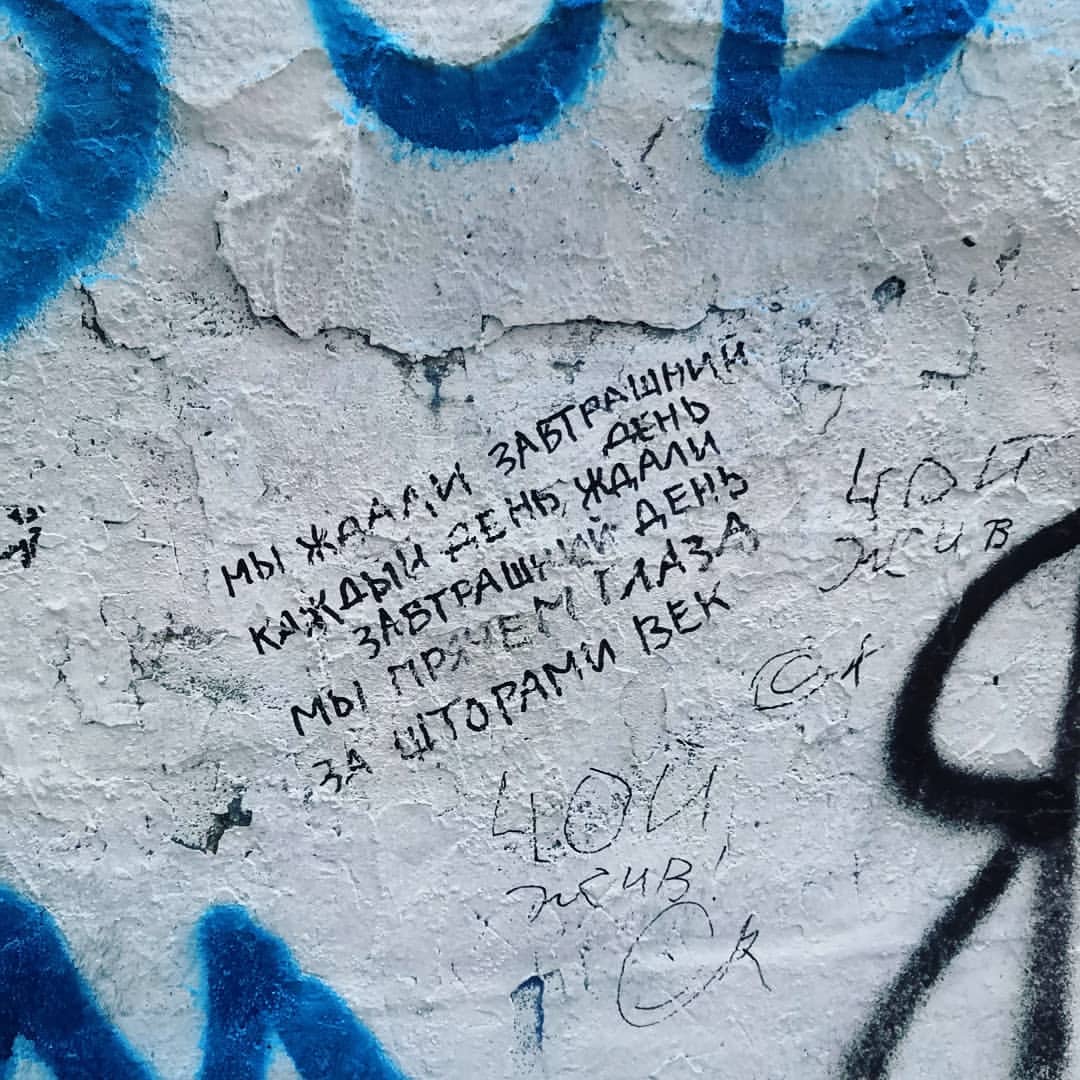 МЫ ЖДАЛИ ЗАВТРАШНИЙ
ДЕНЬ
КАЖДЫЙ ДЕНЬ ЖДАЛИ
ЗАВТРАШНИЙ ДЕНЬ
МЫ ПРЯЧЕМ ГЛАЗА
ЗА ШТОРАМИ ВЕК
ЦОЙ
жив
ЦОЙ
жив!